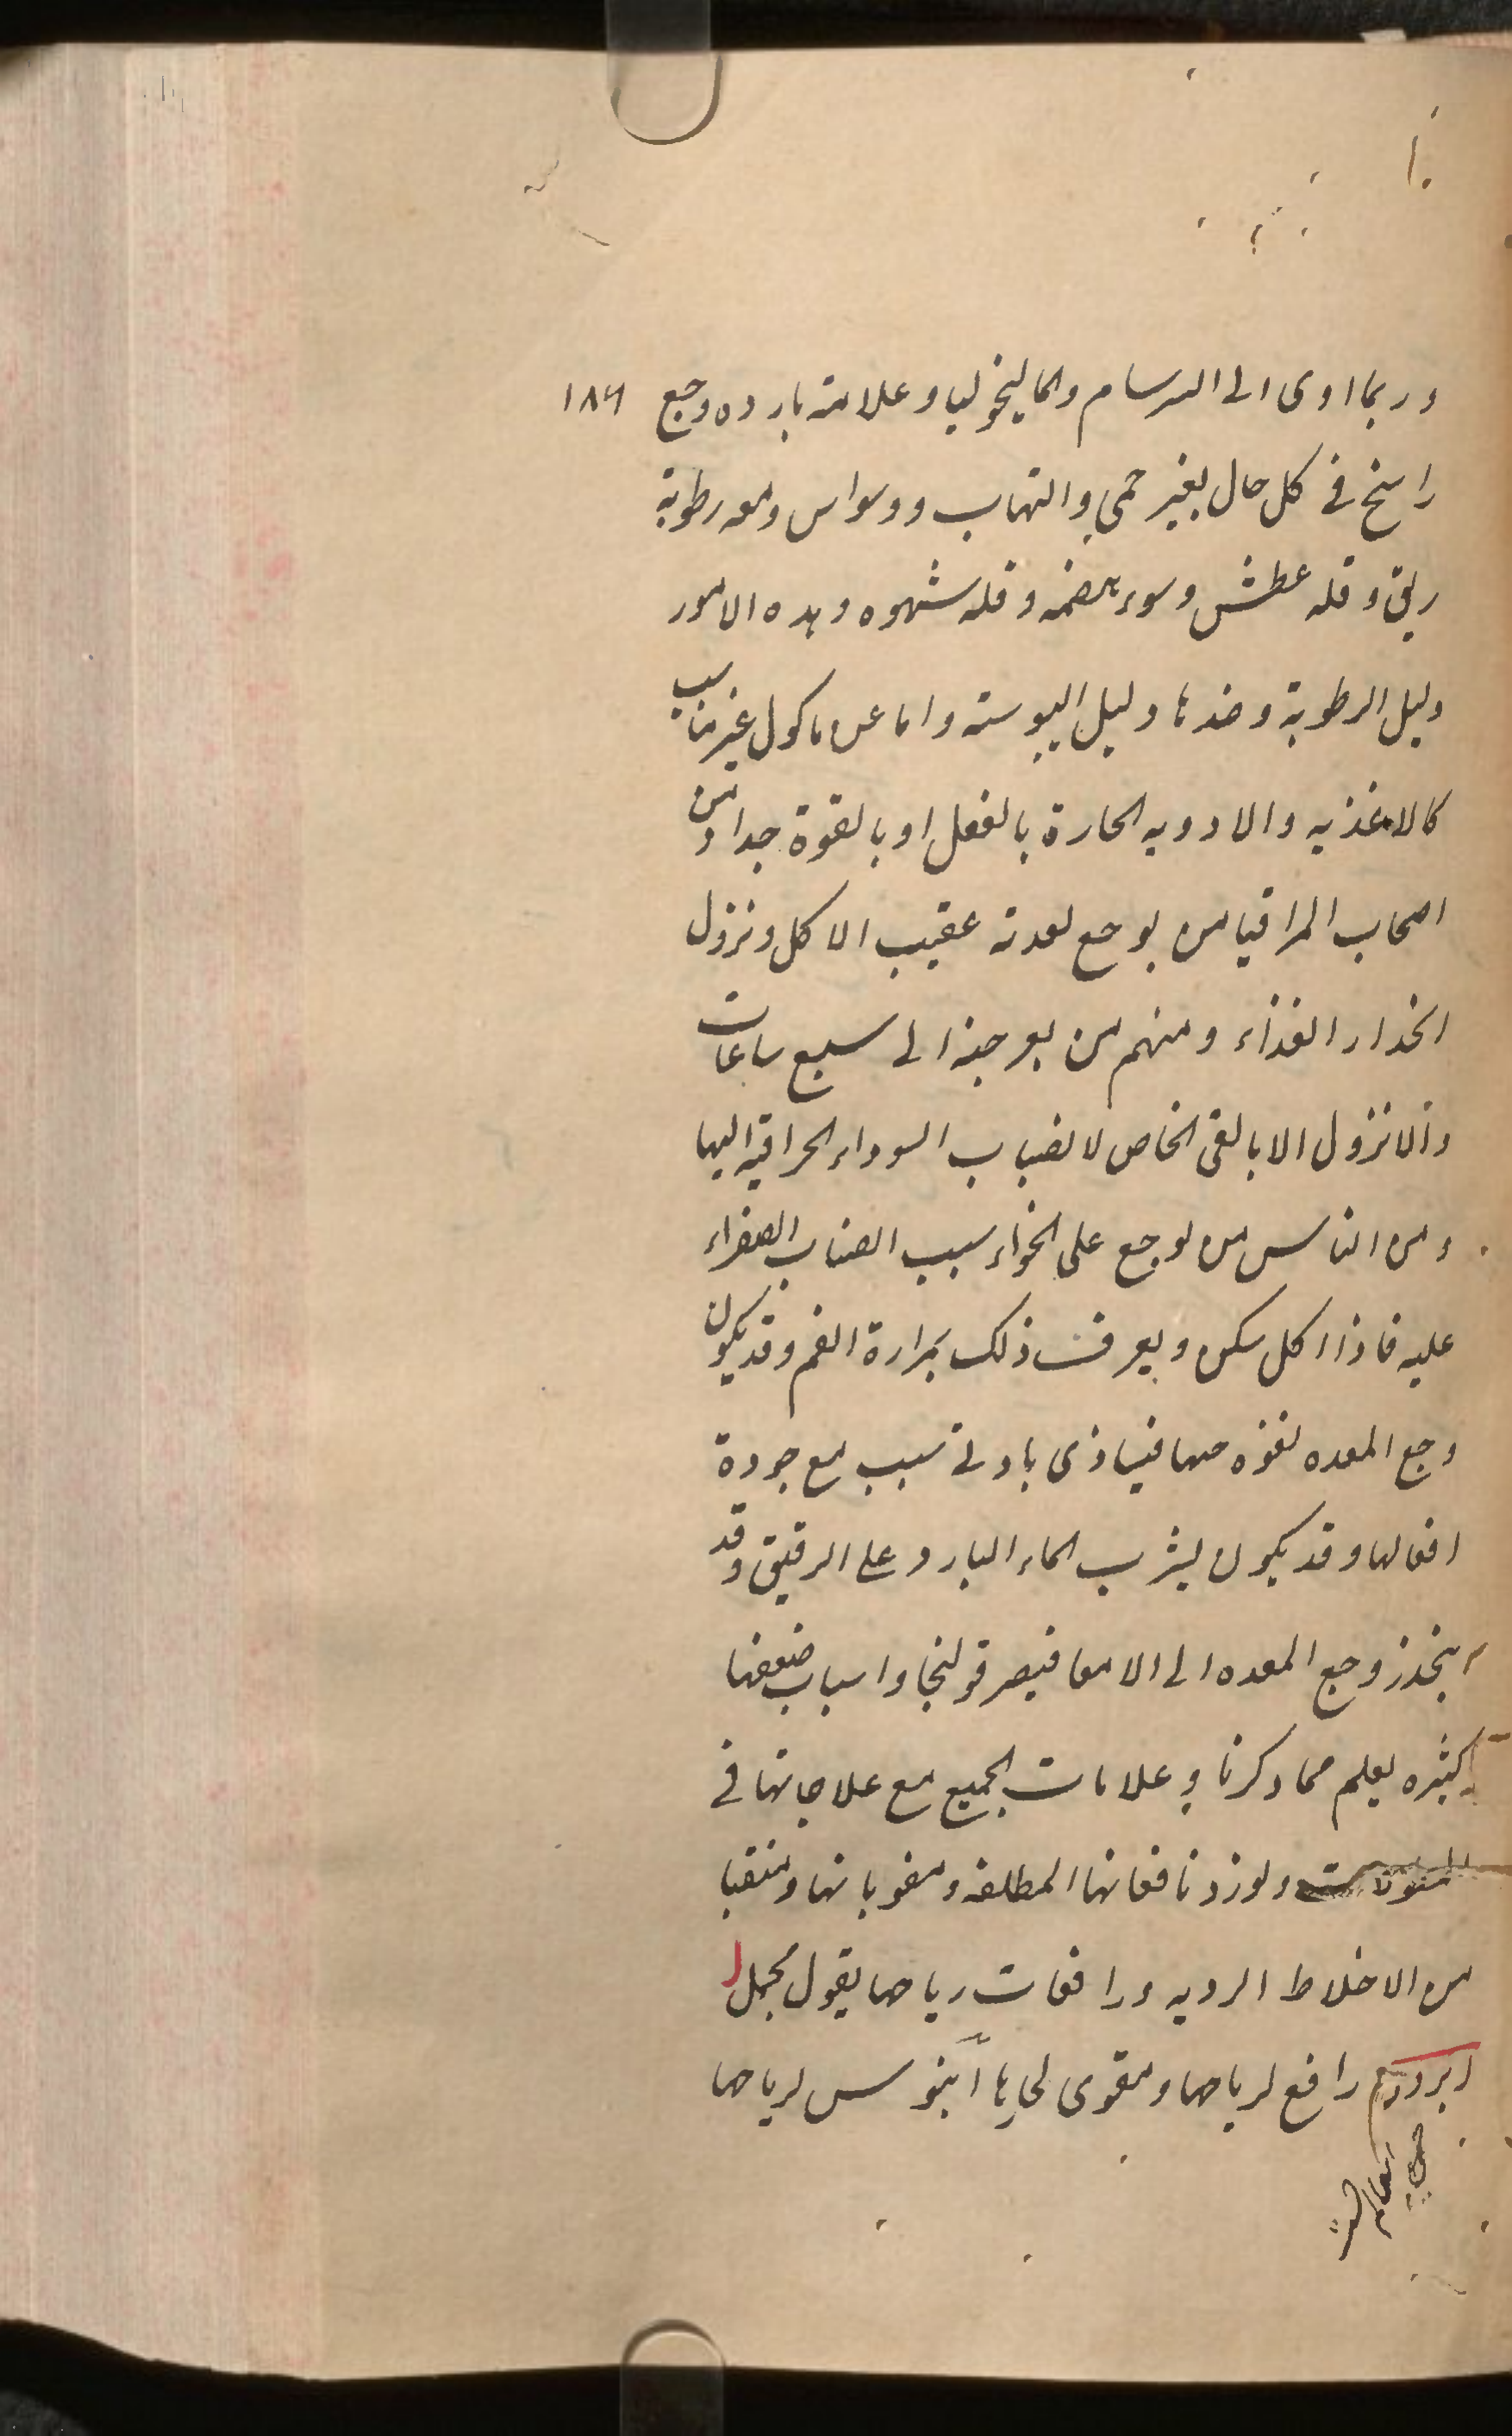 وربما اوى الى السرسام والماليخوليا وعلامة بارده وجع ١٨٦
راسخ في كل حال بغير حمى والتهاب ووسواس ومعه رطوبة
ريق وقله عطش وسوء هضمه وقله شهوه وهده الامور
دليل الرطوبة وضدها دليل اليبوسته واما عن ماكول غير مناسب
كالاغذيه والادويه الحارة بالفعل او بالقوة جدا ومن
اصحاب المراقيا من يوجع لعدته عقيب الاكل ونزول
انحدار الغذاء ومنهم من يوجبه الى سبع ساعات
والا نزول الا بالقى الخاص لانصباب السوداء الحراقيه اليها
ومن الناس من يوجع على الخواء بسبب انصباب الصفراء
عليه فاذا اكل سكن ويعرف ذلك بمرارة الفم وقد يكون
وجع المعده لقوه حسها فيتاذى بادنى سبب مع جودة
افعالها وقد يكون لشرب الماء البارد على الريق وقد
ينحدر وجع المعده الى الامعا فيصر قولنجا واسباب ضعفها
كثيره يعلم مما دكرنا وعلامات الجميع مع علاجاتها في
ولوزدنا فعاتها المطلقه ومقوياتها ومنقيا
من الاخلاط الرديه ورافعات رياحها يقول مجملا
رافع لرياحها ومقوى لحابها آبنوس لرياحها